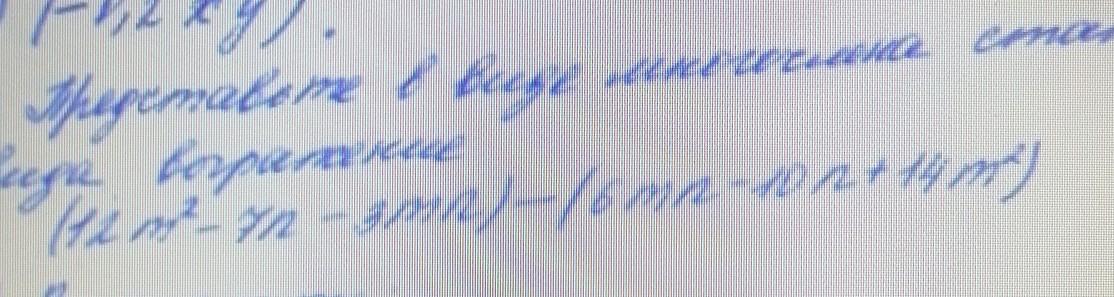 (-1,2 xy).
Представьте в виде многочлена стан
вида выражение
(12 m² - 7n - 3mn) - (6mn - 10n + 14m²)